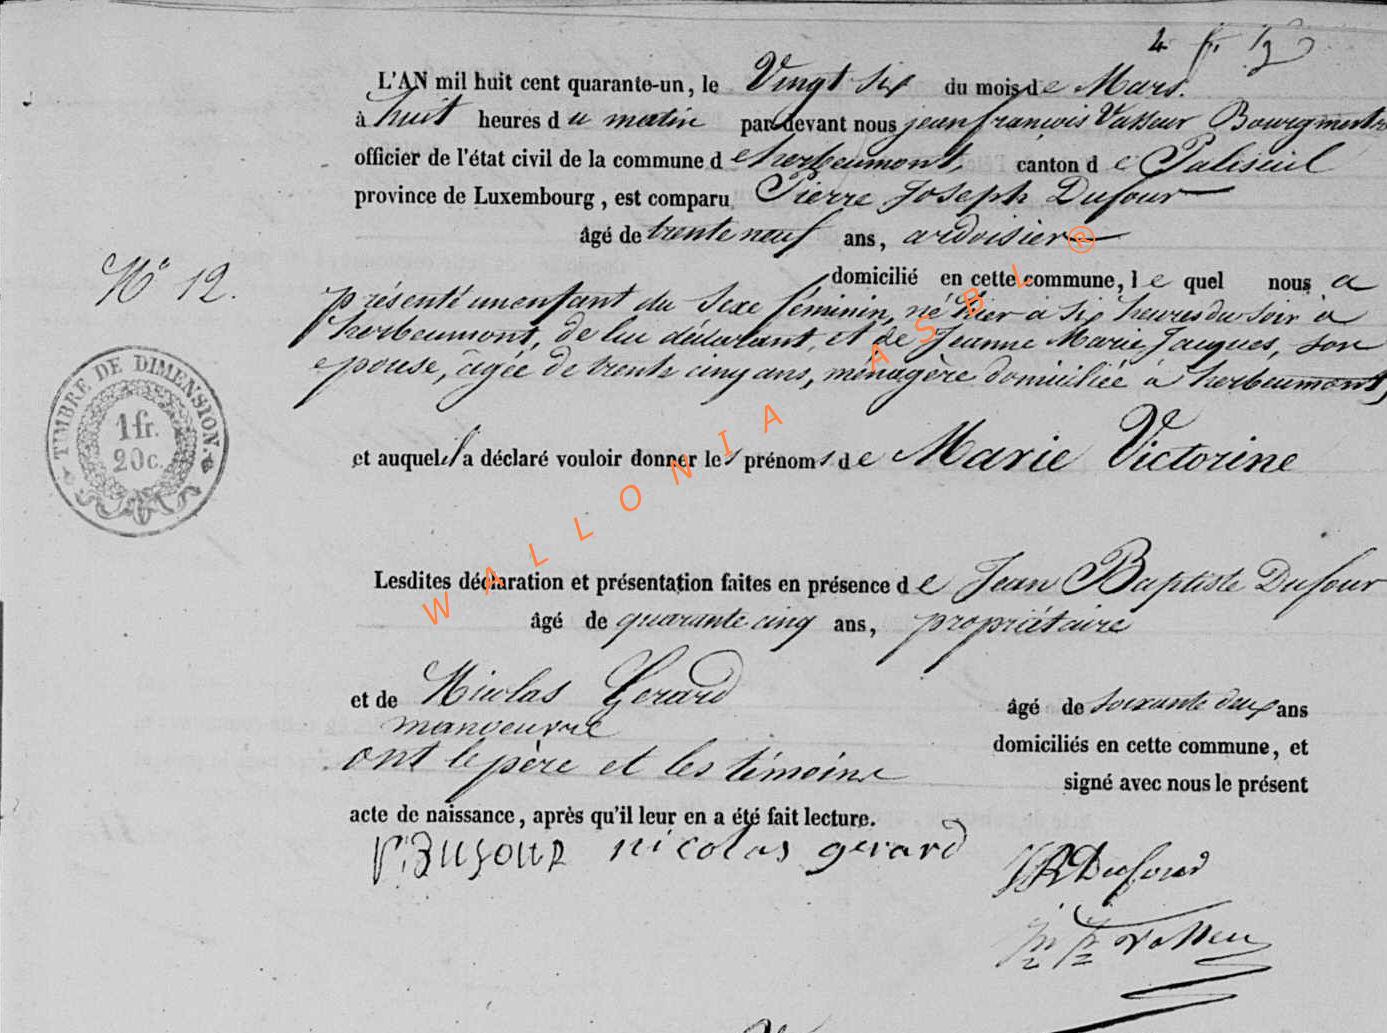 L'AN mil huit cent quarante-un, le Vingt six du mois de Mars.
à huit heures du matin par devant nous jean françois Vasseur Bourgmestre
officier de l'état civil de la commune de herbeumont, canton de Paliseul
province de Luxembourg, est comparu Pierre Joseph Dufour
âgé de trente neuf ans, ardoisier
N° 12.
domicilié en cette commune, lequel nous a
présenté un enfant du Sexe féminin, né hier à six heures du soir à
herbeumont, de lui déclarant, et de Jeanne Marie Jacques, son
epouse, âgée de trente cinq ans, ménagère domiciliée à herbeumont,
TIMBRE DE DIMENSION.
1 fr.
20 c.
et auquel il a déclaré vouloir donner les prénoms de Marie Victorine
Lesdites déclaration et présentation faites en présence de Jean Baptiste Dufour
âgé de quarante cinq ans, propriétaire
et de Nicolas Gerard âgé de soixante deux ans
manoeuvre
domiciliés en cette commune, et
ont le père et les témoins
signé avec nous le présent
acte de naissance, après qu'il leur en a été fait lecture.
P. J. Dufour nicolas gerard
JB Dufour
Vasseur
WALLONIA ASBL ®